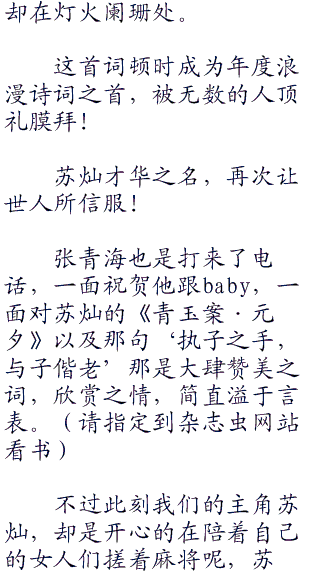 却在灯火阑珊处。
这首词顿时成为年度浪
漫诗词之首，被无数的人顶
礼膜拜！
苏灿才华之名，再次让
世人所信服！
张青海也是打来了电
话，一面祝贺他跟baby，一
面对苏灿的《青玉案·元
夕》以及那句‘执子之手，
与子偕老’那是大肆赞美之
词，欣赏之情，简直溢于言
表。（请指定到杂志虫网站
看书）
不过此刻我们的主角苏
灿，却是开心的在陪着自己
的女人们搓着麻将呢，苏